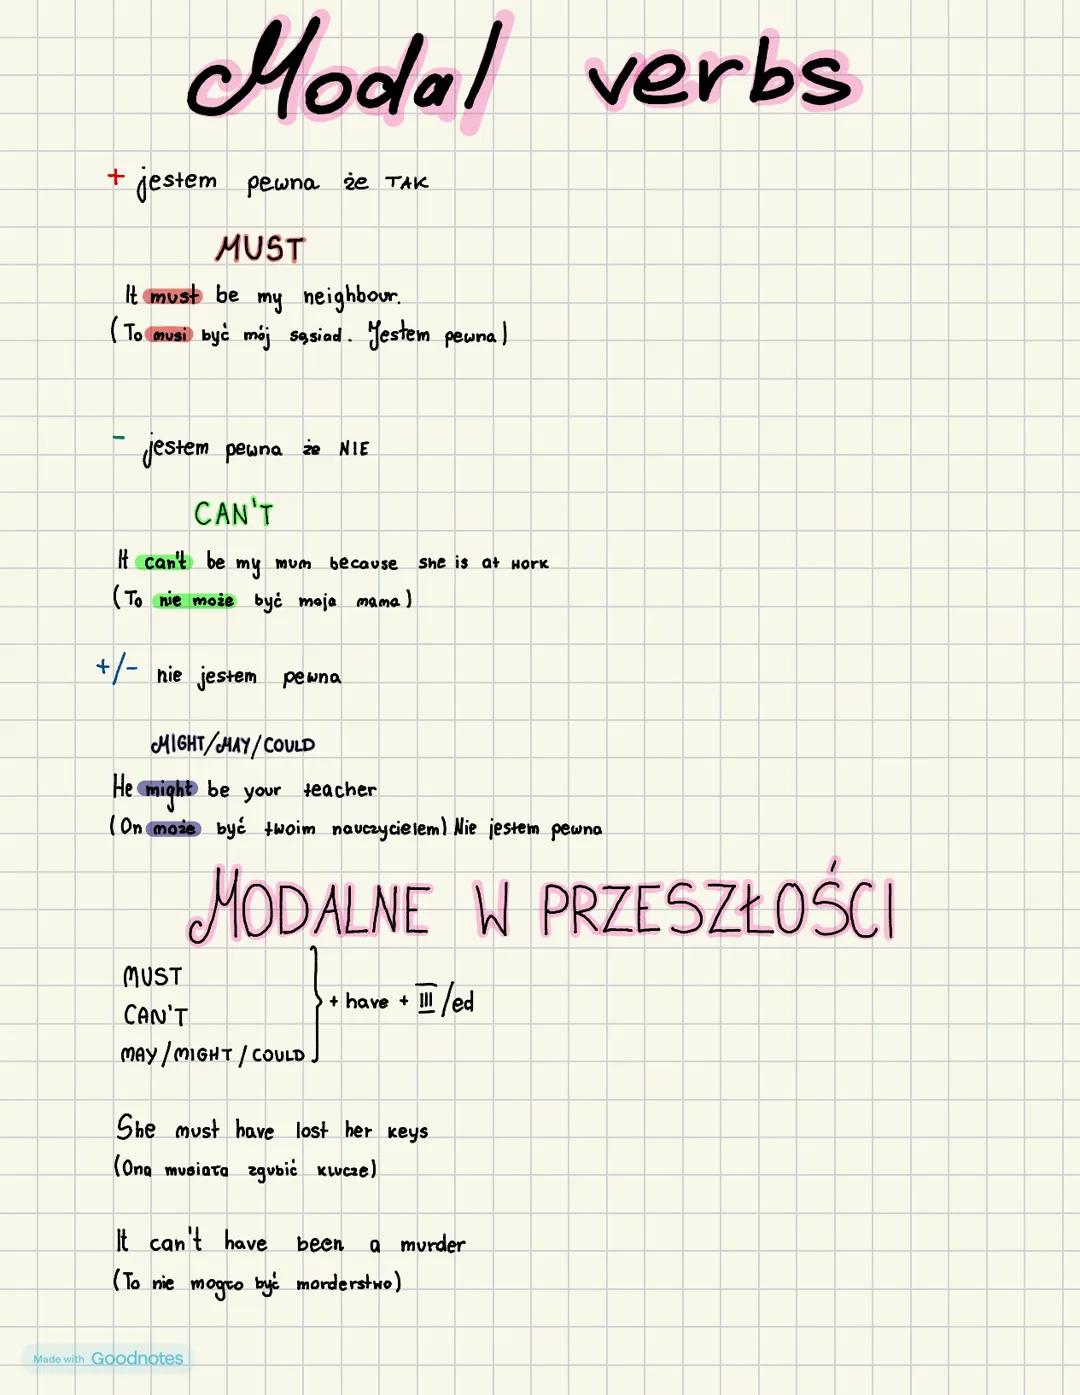 Modal verbs
+ jestem pewna że TAK
MUST
It must be my neighbour.
(To musi być mój sąsiad. Jestem pewna)
- jestem pewna że NIE
CAN'T
It can't be my mum because she is at work
(To nie może być moja mama)
+/- nie jestem pewna
MIGHT/MAY/COULD
He might be your teacher
(On może być twoim nauczycielem) Nie jestem pewna
MODALNE W PRZESZŁOŚCI
MUST
CAN'T
MAY/MIGHT/COULD
+ have + III/ed
She must have lost her keys
(Ona musiała zgubić klucze)
It can't have been a murder
(To nie mogło być morderstwo)
Made with Goodnotes